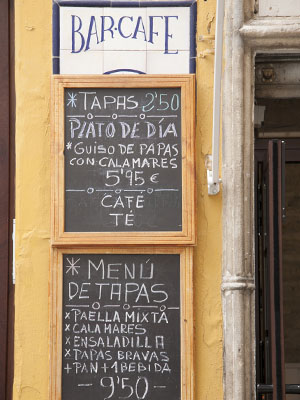 BAR·CAFE
* TAPAS 2'50
PLATO DE DÍA
* GUISO DE PAPAS
CON CALAMARES
5'95 €
CAFÉ
TÉ
* MENÚ
DE TAPAS
x PAELLA MIXTA
x CALAMARES
x ENSALADILLA
x PAPAS BRAVAS
+ PAN + 1 BEBIDA
- 9'50 -